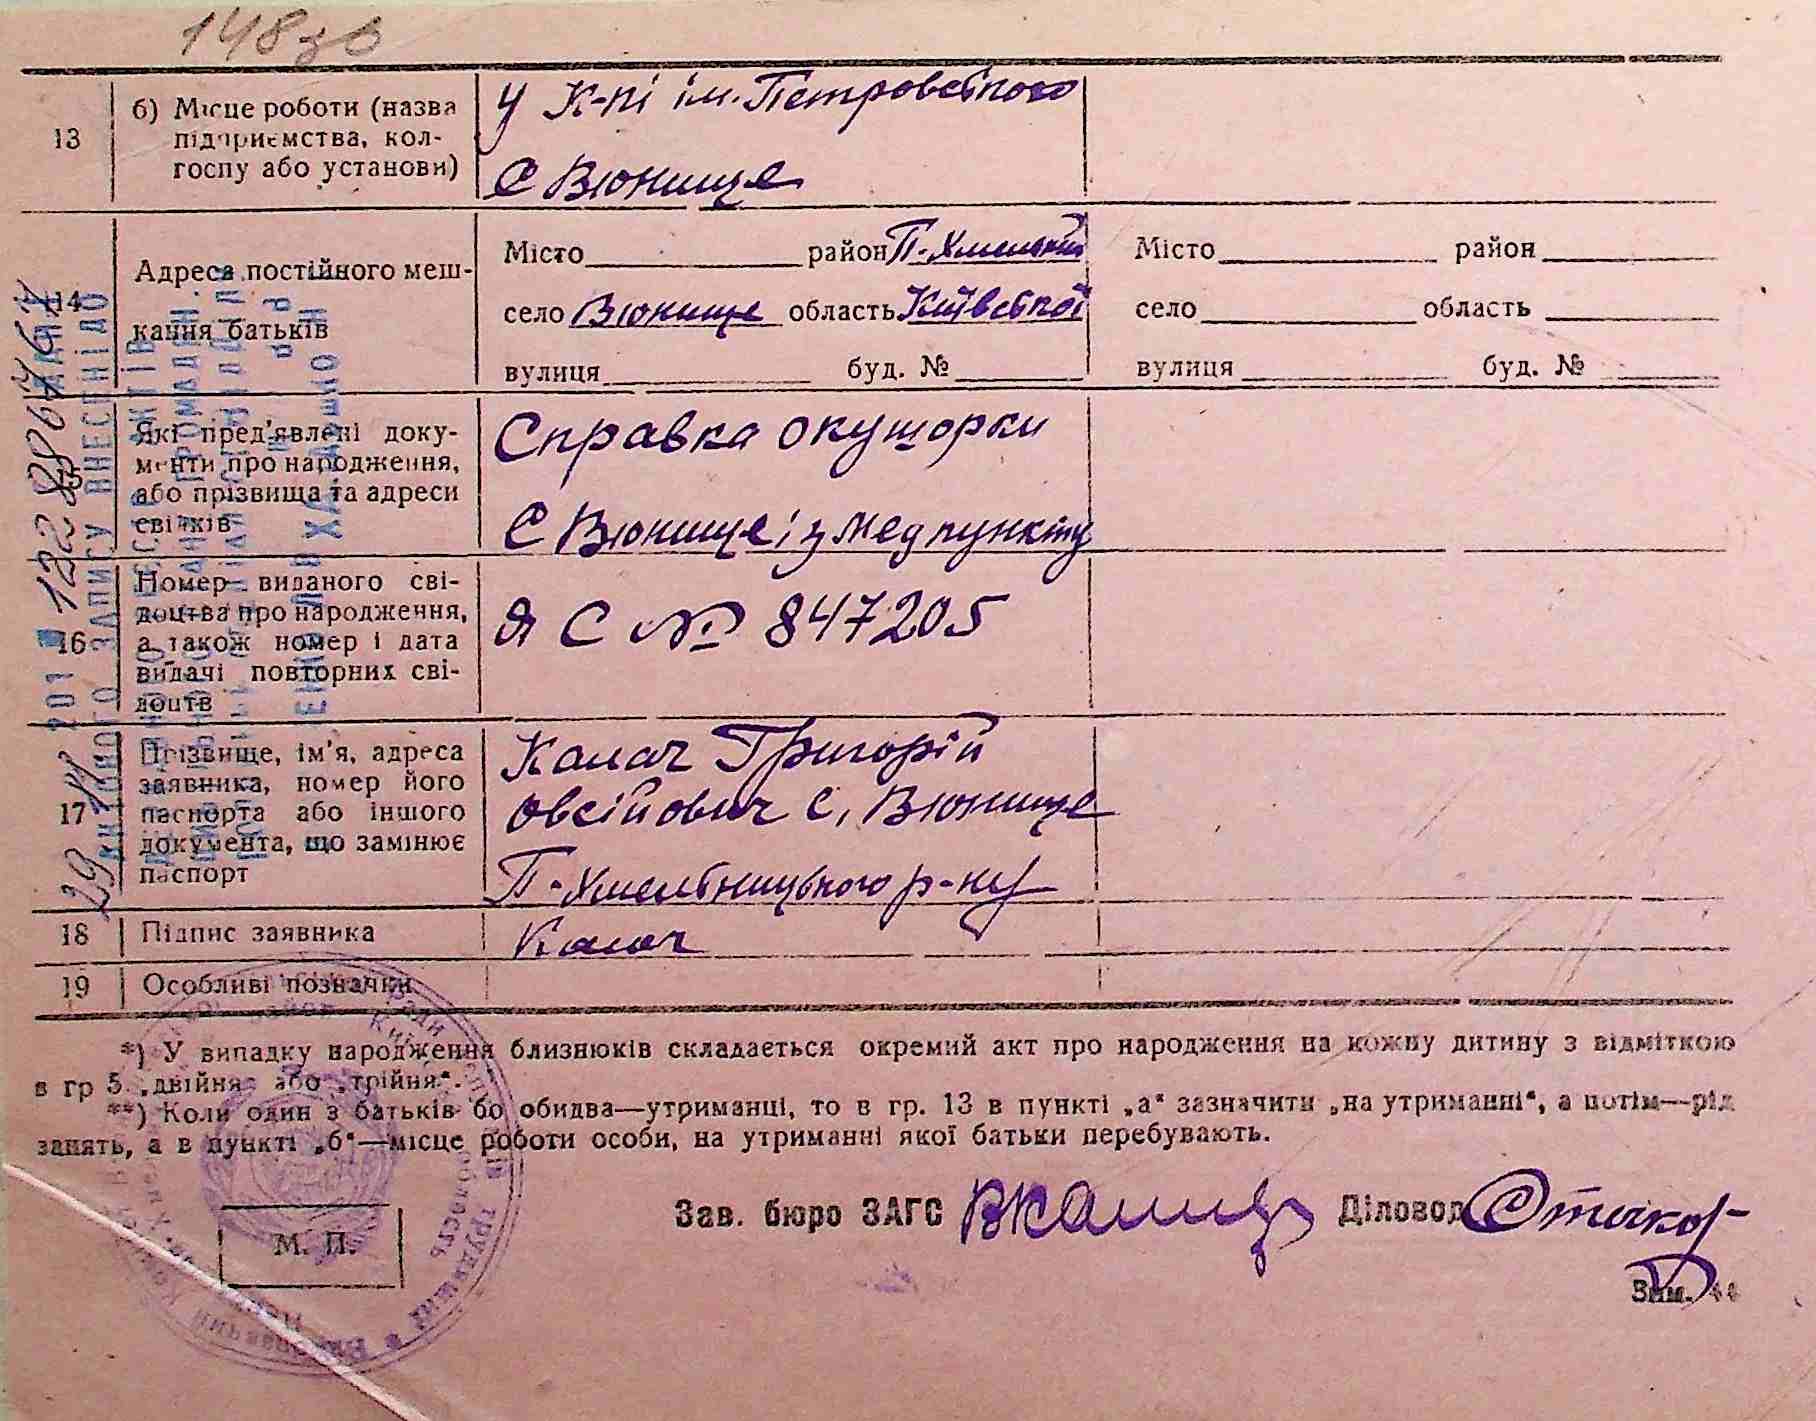 148зв
13
б) Місце роботи (назва
підприємства, кол-
госпу або установи)
У К-пі ім. Петровського
С Вюнище
14
Адреса постійного меш-
кання батьків
Місто район П-Хмельський
село Вюнище область Київської
вулиця буд. №
Місто район
село область
вулиця буд. №
Які пред'явлені доку-
менти про народження,
або прізвища та адреси
свідків
Справка окушорки
С Вюнище із медпункту
16
Номер виданого сві-
доцтва про народження,
а також номер і дата
видачі повторних сві-
доцтв
Я С № 847205
17
Прізвище, ім'я, адреса
заявника, номер його
паспорта або іншого
документа, що замінює
паспорт
Калач Григорій
Овсійович С. Вюнище
П-Хмельницького р-ну
18
Підпис заявника
Калач
19
Особливі позначки
*) У випадку народження близнюків складається окремий акт про народження на кожну дитину з відміткою
в гр 5 „двійня" або „трійня".
**) Коли один з батьків бо обидва—утриманці, то в гр. 13 в пункті „а" зазначити „на утриманні", а потім—рід
занять, а в пункті „б"—місце роботи особи, на утриманні якої батьки перебувають.
Зав. бюро ЗАГС
Діловод
М. П.
Зам.